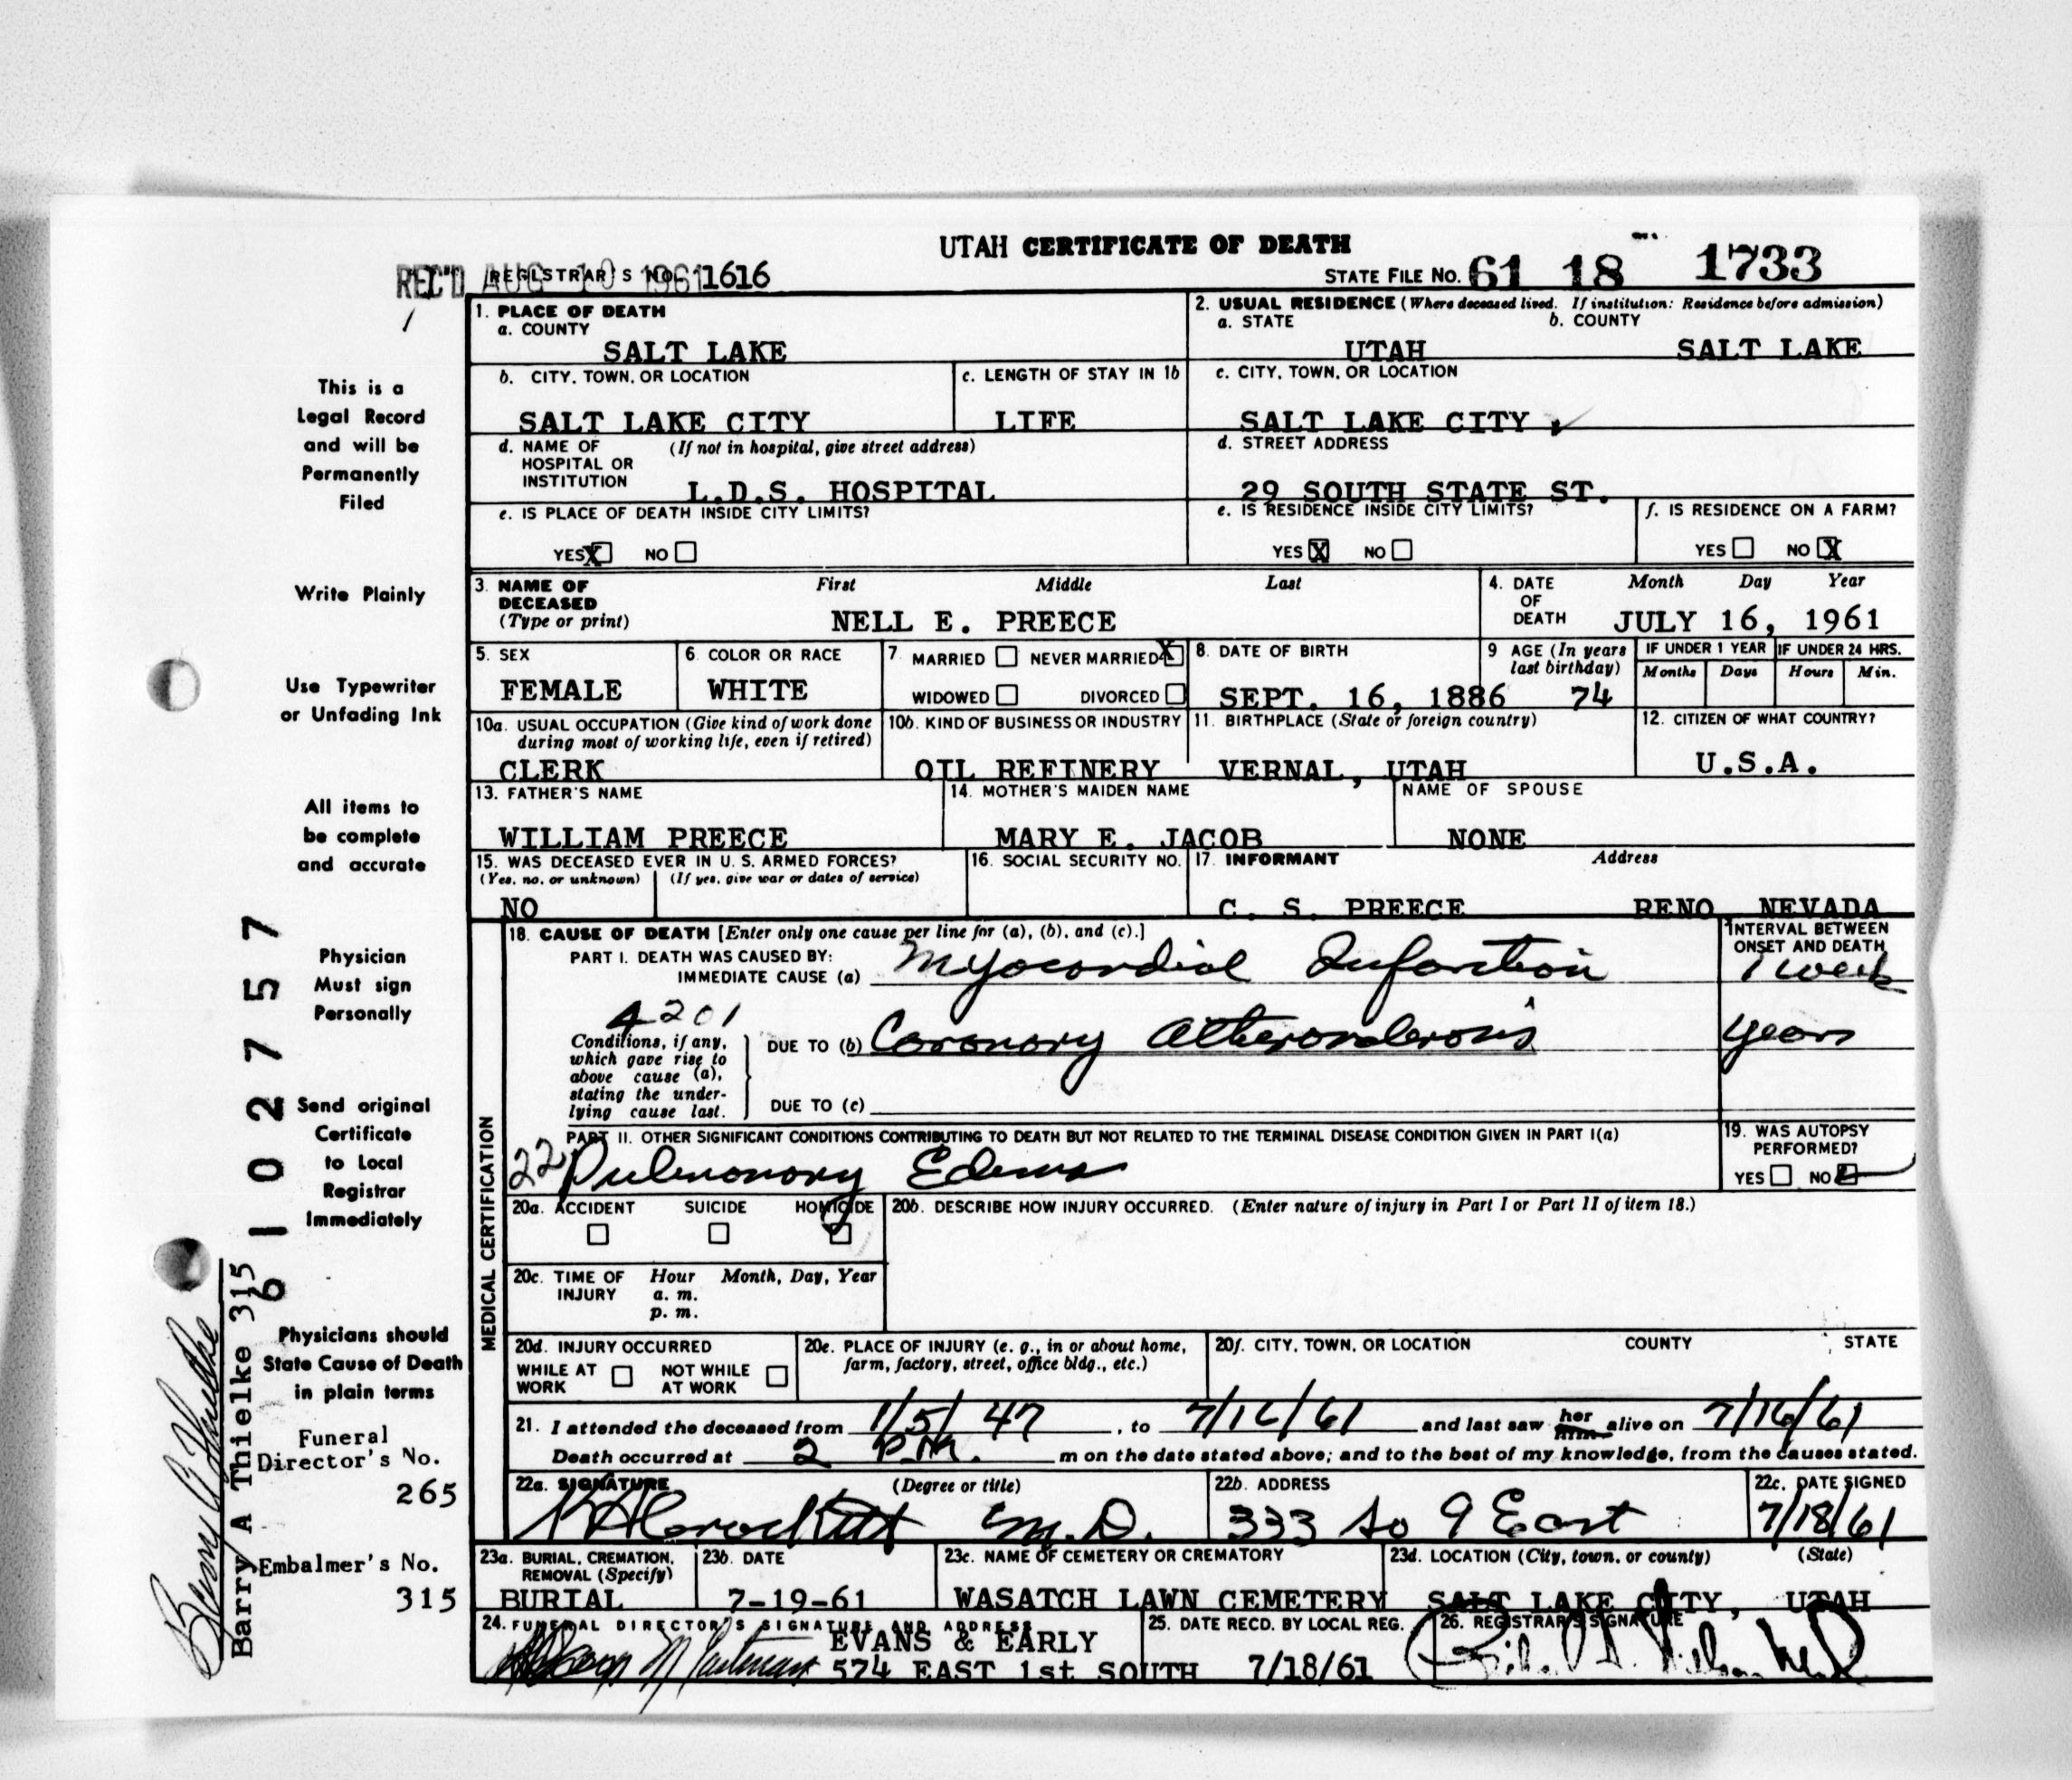 UTAH CERTIFICATE OF DEATH
REC'D AUG 10 1961 REGISTRAR'S NO. 1616 STATE FILE NO. 61 18 1733
1. PLACE OF DEATH
a. COUNTY
SALT LAKE
2. USUAL RESIDENCE (Where deceased lived. If institution: Residence before admission)
a. STATE b. COUNTY
UTAH SALT LAKE
b. CITY, TOWN, OR LOCATION
SALT LAKE CITY
c. LENGTH OF STAY IN 1b
LIFE
c. CITY, TOWN, OR LOCATION
SALT LAKE CITY
d. NAME OF (If not in hospital, give street address)
HOSPITAL OR
INSTITUTION L.D.S. HOSPITAL
d. STREET ADDRESS
29 SOUTH STATE ST.
e. IS PLACE OF DEATH INSIDE CITY LIMITS?
YES X NO
e. IS RESIDENCE INSIDE CITY LIMITS?
YES X NO
f. IS RESIDENCE ON A FARM?
YES NO X
3. NAME OF DECEASED (Type or print) First Middle Last
NELL E. PREECE
4. DATE OF DEATH Month Day Year
JULY 16, 1961
5. SEX
FEMALE
6. COLOR OR RACE
WHITE
7 MARRIED NEVER MARRIED X
WIDOWED DIVORCED
8. DATE OF BIRTH
SEPT. 16, 1886
9 AGE (In years last birthday)
74
IF UNDER 1 YEAR IF UNDER 24 HRS.
Months Days Hours Min.
10a. USUAL OCCUPATION (Give kind of work done
during most of working life, even if retired)
CLERK
10b. KIND OF BUSINESS OR INDUSTRY
OIL REFINERY
11. BIRTHPLACE (State or foreign country)
VERNAL, UTAH
12. CITIZEN OF WHAT COUNTRY?
U.S.A.
13. FATHER'S NAME
WILLIAM PREECE
14. MOTHER'S MAIDEN NAME
MARY E. JACOB
NAME OF SPOUSE
NONE
15. WAS DECEASED EVER IN U. S. ARMED FORCES?
(Yes, no, or unknown) (If yes, give war or dates of service)
NO
16. SOCIAL SECURITY NO.
17. INFORMANT Address
C. S. PREECE RENO NEVADA
MEDICAL CERTIFICATION
18. CAUSE OF DEATH [Enter only one cause per line for (a), (b), and (c).]
INTERVAL BETWEEN
ONSET AND DEATH
PART I. DEATH WAS CAUSED BY:
IMMEDIATE CAUSE (a) Myocardial Infarction 1 week
4201
Conditions, if any,
which gave rise to
above cause (a),
stating the under-
lying cause last.
DUE TO (b) Coronary Atherosclerosis years
DUE TO (c)
PART II. OTHER SIGNIFICANT CONDITIONS CONTRIBUTING TO DEATH BUT NOT RELATED TO THE TERMINAL DISEASE CONDITION GIVEN IN PART I(a)
22 Pulmonary Edema
19. WAS AUTOPSY
PERFORMED?
YES NO
20a. ACCIDENT SUICIDE HOMICIDE
20b. DESCRIBE HOW INJURY OCCURRED. (Enter nature of injury in Part I or Part II of item 18.)
20c. TIME OF INJURY Hour Month, Day, Year
a. m.
p. m.
20d. INJURY OCCURRED
WHILE AT WORK NOT WHILE AT WORK
20e. PLACE OF INJURY (e. g., in or about home,
farm, factory, street, office bldg., etc.)
20f. CITY, TOWN, OR LOCATION COUNTY STATE
21. I attended the deceased from 1/5/47, to 7/16/61 and last saw her him alive on 7/16/61
Death occurred at 2 P.M. m on the date stated above; and to the best of my knowledge, from the causes stated.
22a. SIGNATURE (Degree or title)
Crockett M.D.
22b. ADDRESS
333 So 9 East
22c. DATE SIGNED
7/18/61
23a. BURIAL, CREMATION,
REMOVAL (Specify)
BURIAL
23b. DATE
7-19-61
23c. NAME OF CEMETERY OR CREMATORY
WASATCH LAWN CEMETERY
23d. LOCATION (City, town, or county) (State)
SALT LAKE CITY, UTAH
24. FUNERAL DIRECTOR'S SIGNATURE AND ADDRESS
EVANS & EARLY
574 EAST 1st SOUTH
25. DATE RECD. BY LOCAL REG.
7/18/61
26. REGISTRAR'S SIGNATURE
This is a
Legal Record
and will be
Permanently
Filed
Write Plainly
Use Typewriter
or Unfading Ink
All items to
be complete
and accurate
Physician
Must sign
Personally
Send original
Certificate
to Local
Registrar
Immediately
Physicians should
State Cause of Death
in plain terms
Funeral
Director's No.
265
Embalmer's No.
315
61027757
Barry A Thielke 315
Barry A Thielke